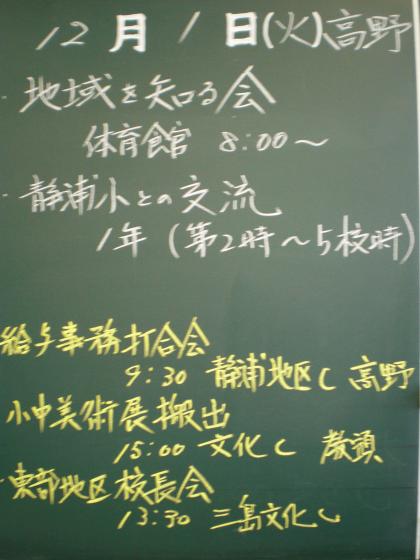 12月1日(火)高野
・地域を知る会
体育館 8:00〜
・静浦小との交流
1年(第2時〜5校時)
給与事務打合会
9:30 静浦地区C 高野
小中美術展搬出
15:00 文化C 教頭
・東部地区校長会
13:30 三島文化C